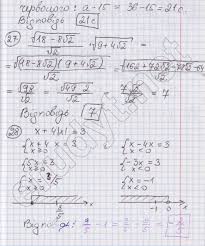 червоного: a-15 = 36-15 = 21с.
Відповідь 21с
27) √(18-8√2)/√2 · √(9+4√2) =
= √((18-8√2)(9+4√2))/√2 = √(162+72√2-72√2-64)/√2
= √98/√2 = √(49·2)/√2 = 7√2/√2 = 7
Відповідь 7
28) x+4|x| = 3
{ x+4x=3 { x-4x=3
{ x≥0 { x<0
{ 5x=3 { -3x=3
{ x≥0 { x<0
{ x=3/5 { x=-1
{ x≥0 { x<0
0 3/5 -1 0
Відповідь: 3/5 - 1 = 3/5 - 5/5 = -2/5